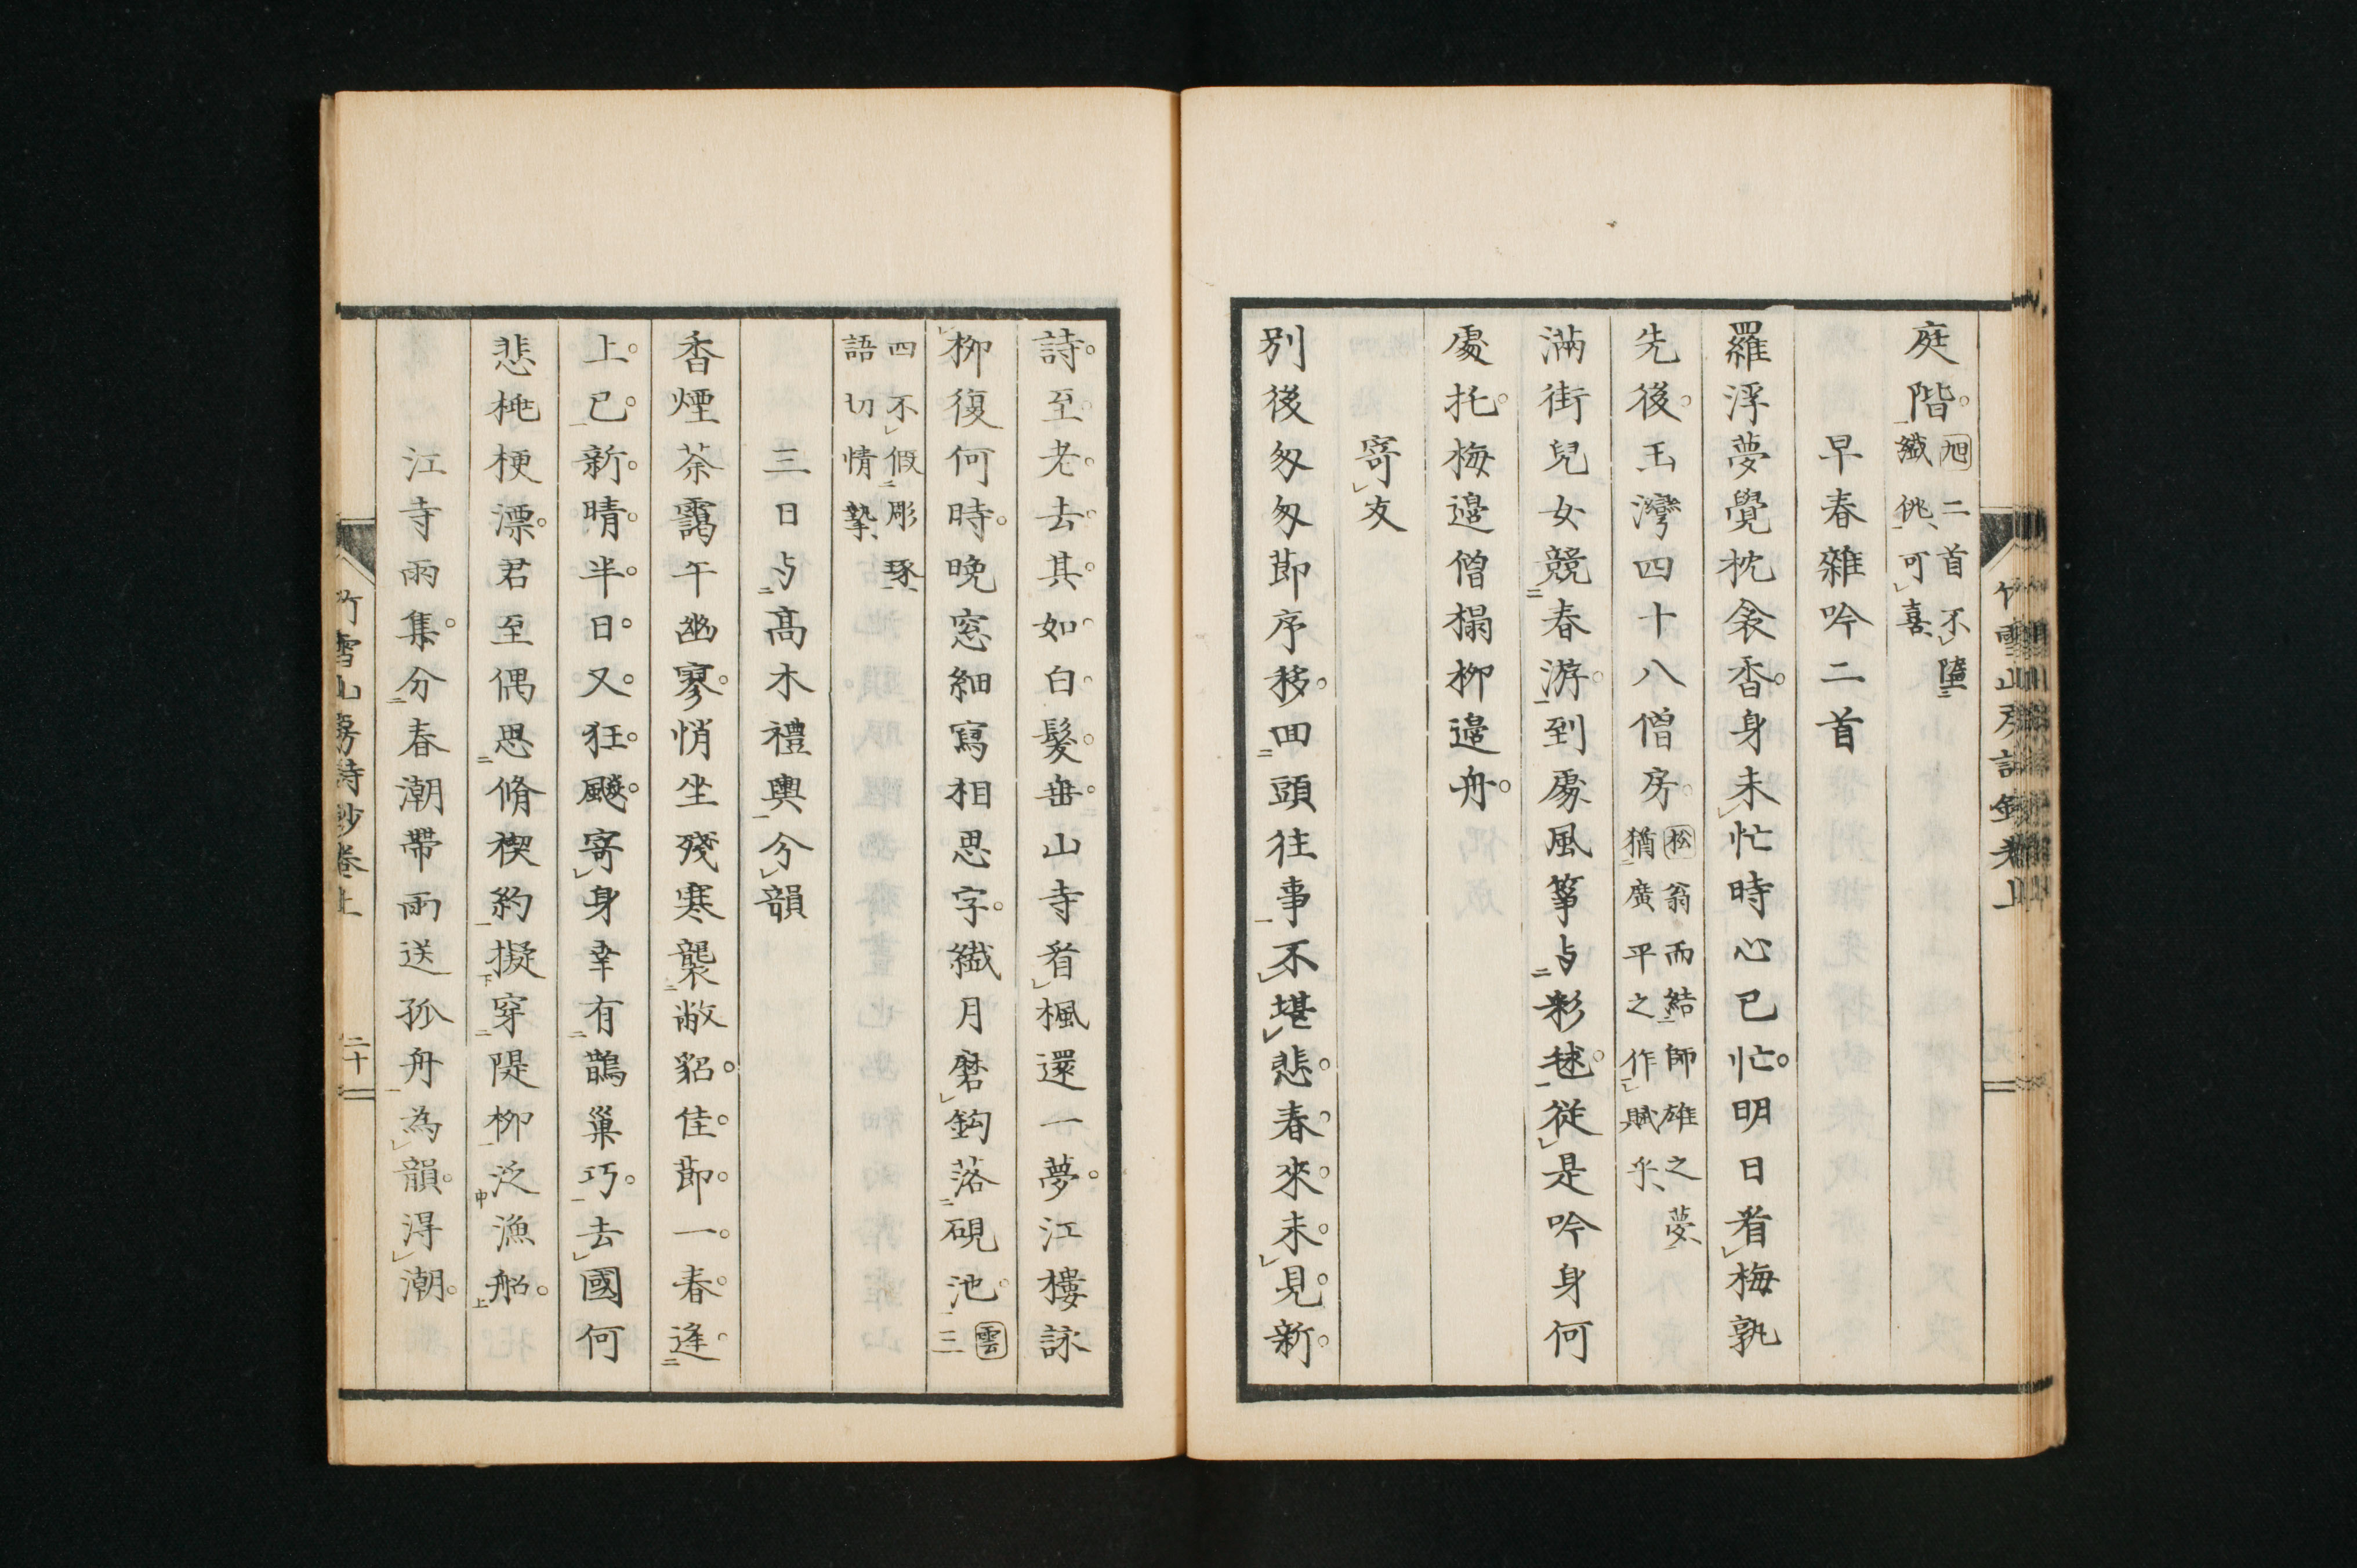 庭階。旭二首不墮
纎佻可喜
早春雜吟二首
羅浮夢覺枕衾香。身未忙時心已忙。明日看梅孰
先後。玉灣四十八僧房。松翁而結師雄之夢
猶廣平之作賦乎
滿街兒女競春游。到處風箏与彩毬。從是吟身何
處托。梅邊僧榻柳邊舟。
寄友
別後匆匆節序移。回頭往事不堪悲。春來未見新
詩至。老去其如白髮垂。山寺看楓還一夢。江樓詠
柳復何時。晚窓細寫相思字。纎月磨鈎落硯池。雲三
四不假彫琢
語切情摯
三日与高木禮輿分韻
香煙茶靄午幽寥。悄坐殘寒襲敝貂。佳節一春逢
上巳。新晴半日又狂飈。寄身幸有鵲巢巧。去國何
悲桃梗漂。君至偶思脩禊約。擬穿隄柳泛漁船。
江寺雨集。分春潮帶雨送孤舟為韻。得潮。
竹雪山房詩鈔卷上
二十